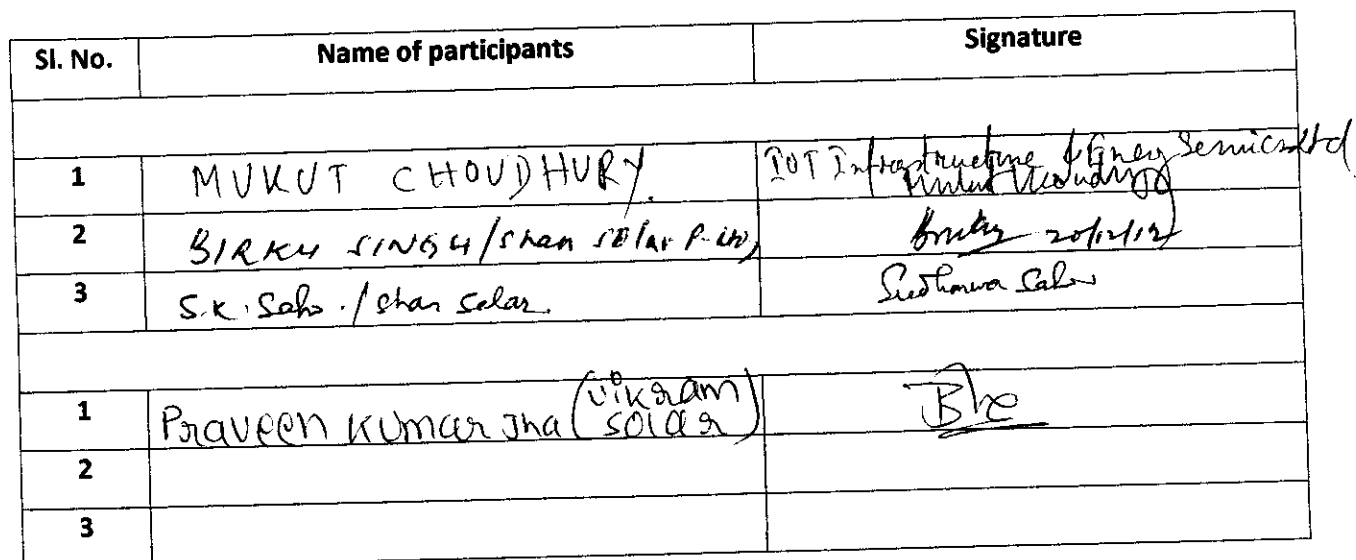 Sl. No. Name of participants Signature
1 MUKUT CHOUDHURY. IOT Infrastructure & Energy Services Ltd
2 BIRKU SINGH/Shan Solar P. Ltd, 20/12/12
3 S.K. Saho./Shan Solar.
1 Praveen Kumar Jha (Vikram
Solar)
2
3